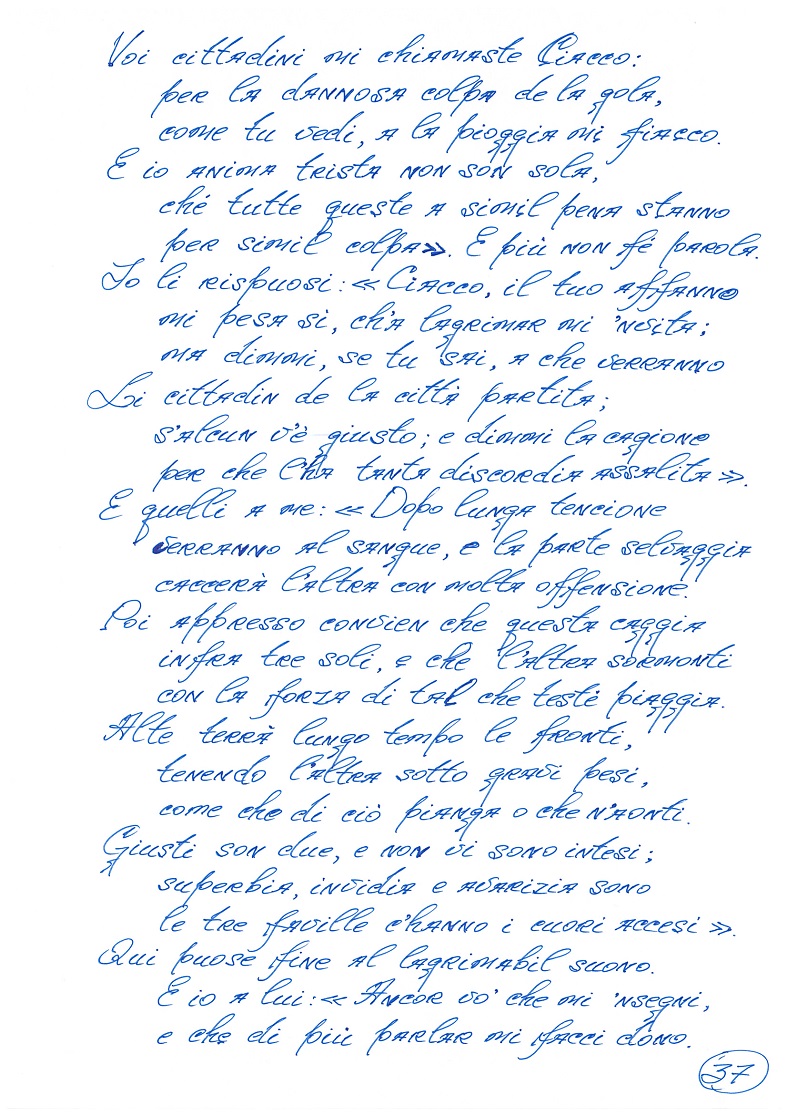 Voi cittadini mi chiamaste Ciacco:
per la dannosa colpa de la gola,
come tu vedi, a la pioggia mi fiacco.
E io anima trista non son sola,
ché tutte queste a simil pena stanno
per simil colpa». E più non fé parola.
Io li rispuosi: «Ciacco, il tuo affanno
mi pesa sì, ch'a lagrimar mi 'nvita;
ma dimmi, se tu sai, a che verranno
Li cittadin de la città partita;
s'alcun v'è giusto; e dimmi la cagione
per che l'ha tanta discordia assalita».
E quelli a me: «Dopo lunga tencione
verranno al sangue, e la parte selvaggia
caccerà l'altra con molta offensione.
Poi appresso convien che questa caggia
infra tre soli, e che l'altra sormonti
con la forza di tal che testé piaggia.
Alte terrà lungo tempo le fronti,
tenendo l'altra sotto gravi pesi,
come che di ciò pianga o che n'aonti.
Giusti son due, e non vi sono intesi;
superbia, invidia e avarizia sono
le tre faville c'hanno i cuori accesi».
Qui puose fine al lagrimabil suono.
E io a lui: «Ancor vo' che mi 'nsegni,
e che di più parlar mi facci dono.
37